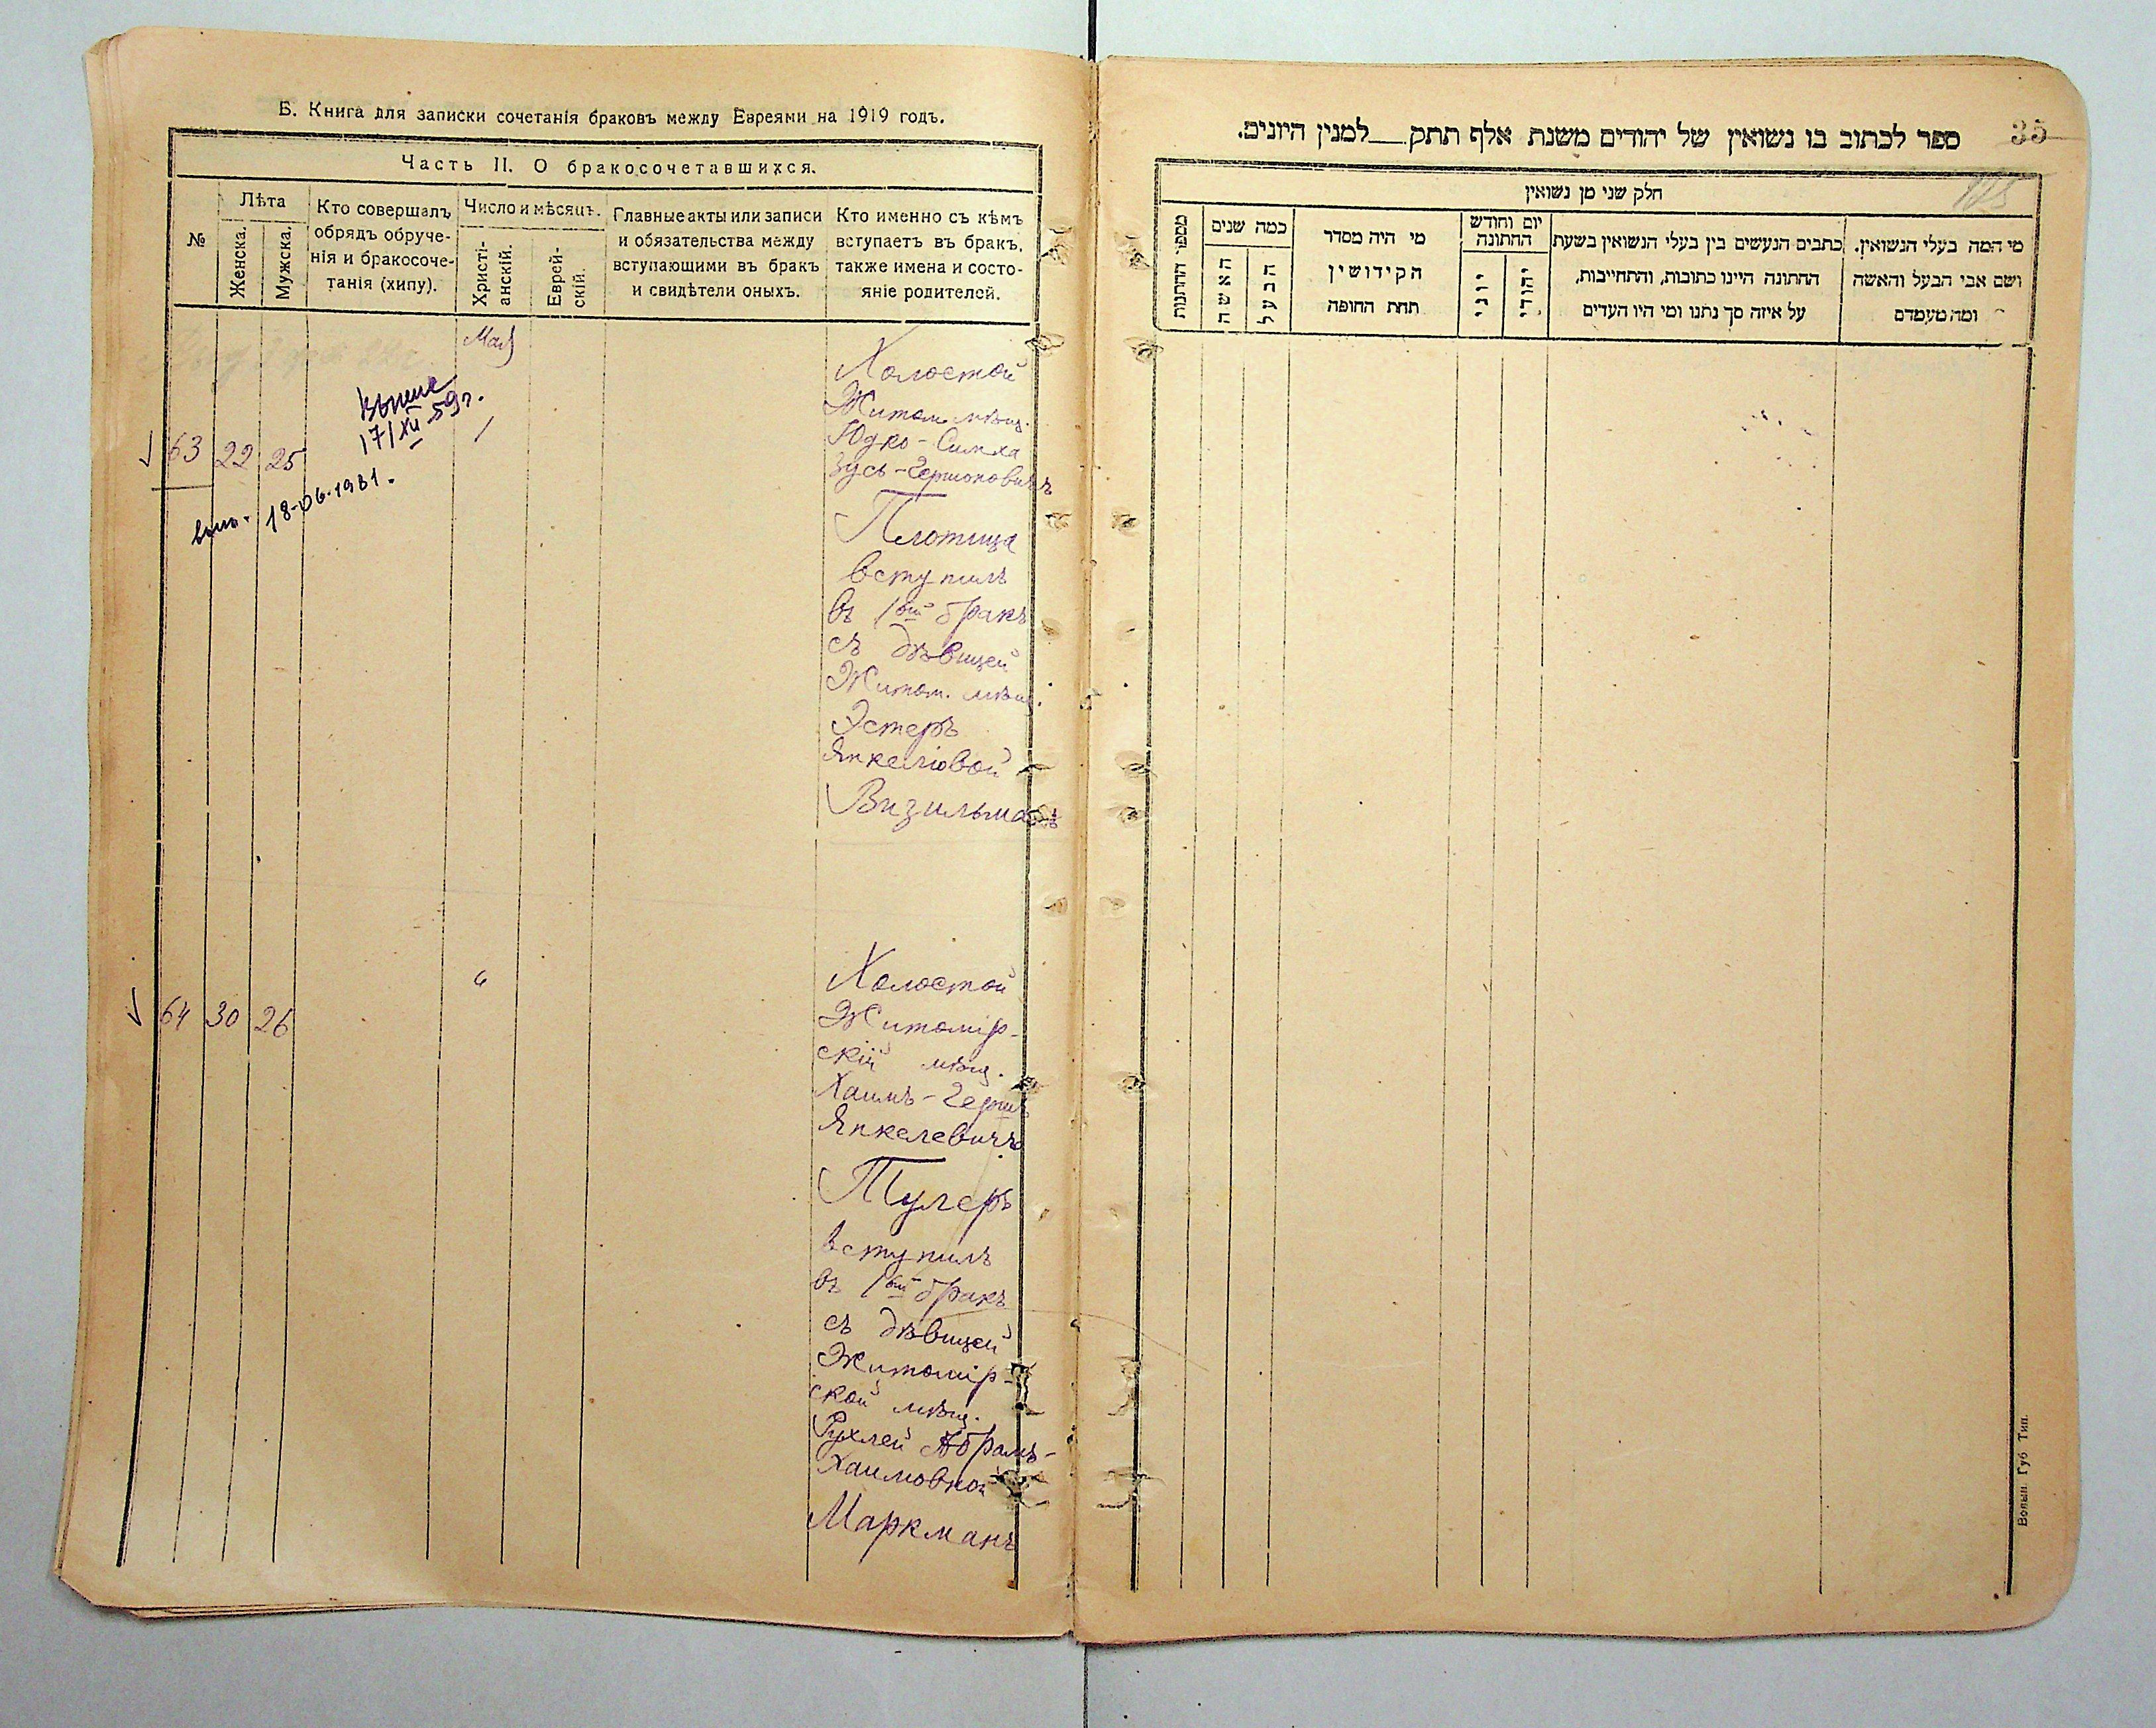 Б. Книга для записки сочетанія браковъ между Евреями на 1919 годъ.
Часть II. О бракосочетавшихся.
№
Лѣта
Женска.
Мужска.
Кто совершалъ
обрядъ обруче-
нія и бракосоче-
танія (хипу).
Число и мѣсяцъ.
Христі-
анскій.
Еврей-
скій.
Главные акты или записи
и обязательства между
вступающими въ бракъ
и свидѣтели оныхъ.
Кто именно съ кѣмъ
вступаетъ въ бракъ,
также имена и состо-
яніе родителей.
63
22
25
17/XII-59г.
18-06-1981.
Май
Холостой
Житом. мѣщ.
Юдко-Симха
Зусь-Гершоновичъ
Плотица
вступилъ
въ 1ый бракъ
съ дѣвицей
Житом. мѣщ.
Эстеръ
Янкеліовой
Визильманъ
64
30
26
6
Холостой
Житомір-
скій мѣщ.
Хаимъ-Гершъ
Янкелевичъ
Тулеръ
вступилъ
въ 1ый бракъ
съ дѣвицей
Житомір-
ской мѣщ.
Рухлей Абрамъ-
Хаимовной
Маркманъ
35
ספר לכתוב בו נשואין של יהודים משנת אלף תתק___למנין היונים.
חלק שני מן נשואין
מספר החתנות
כמה שנים
האשה
הבעל
מי היה מסדר
הקידושין
תחת החופה
יום וחודש
החתונה
יוני
יהודי
כתבים הנעשים בין בעלי הנשואין בשעת
החתונה היינו כתובות, והתחייבות,
על איזה סך נתנו ומי היו העדים
מי המה בעלי הנשואין.
ושם אבי הבעל והאשה
ומה מעמדם
Волын. Губ. Тип.